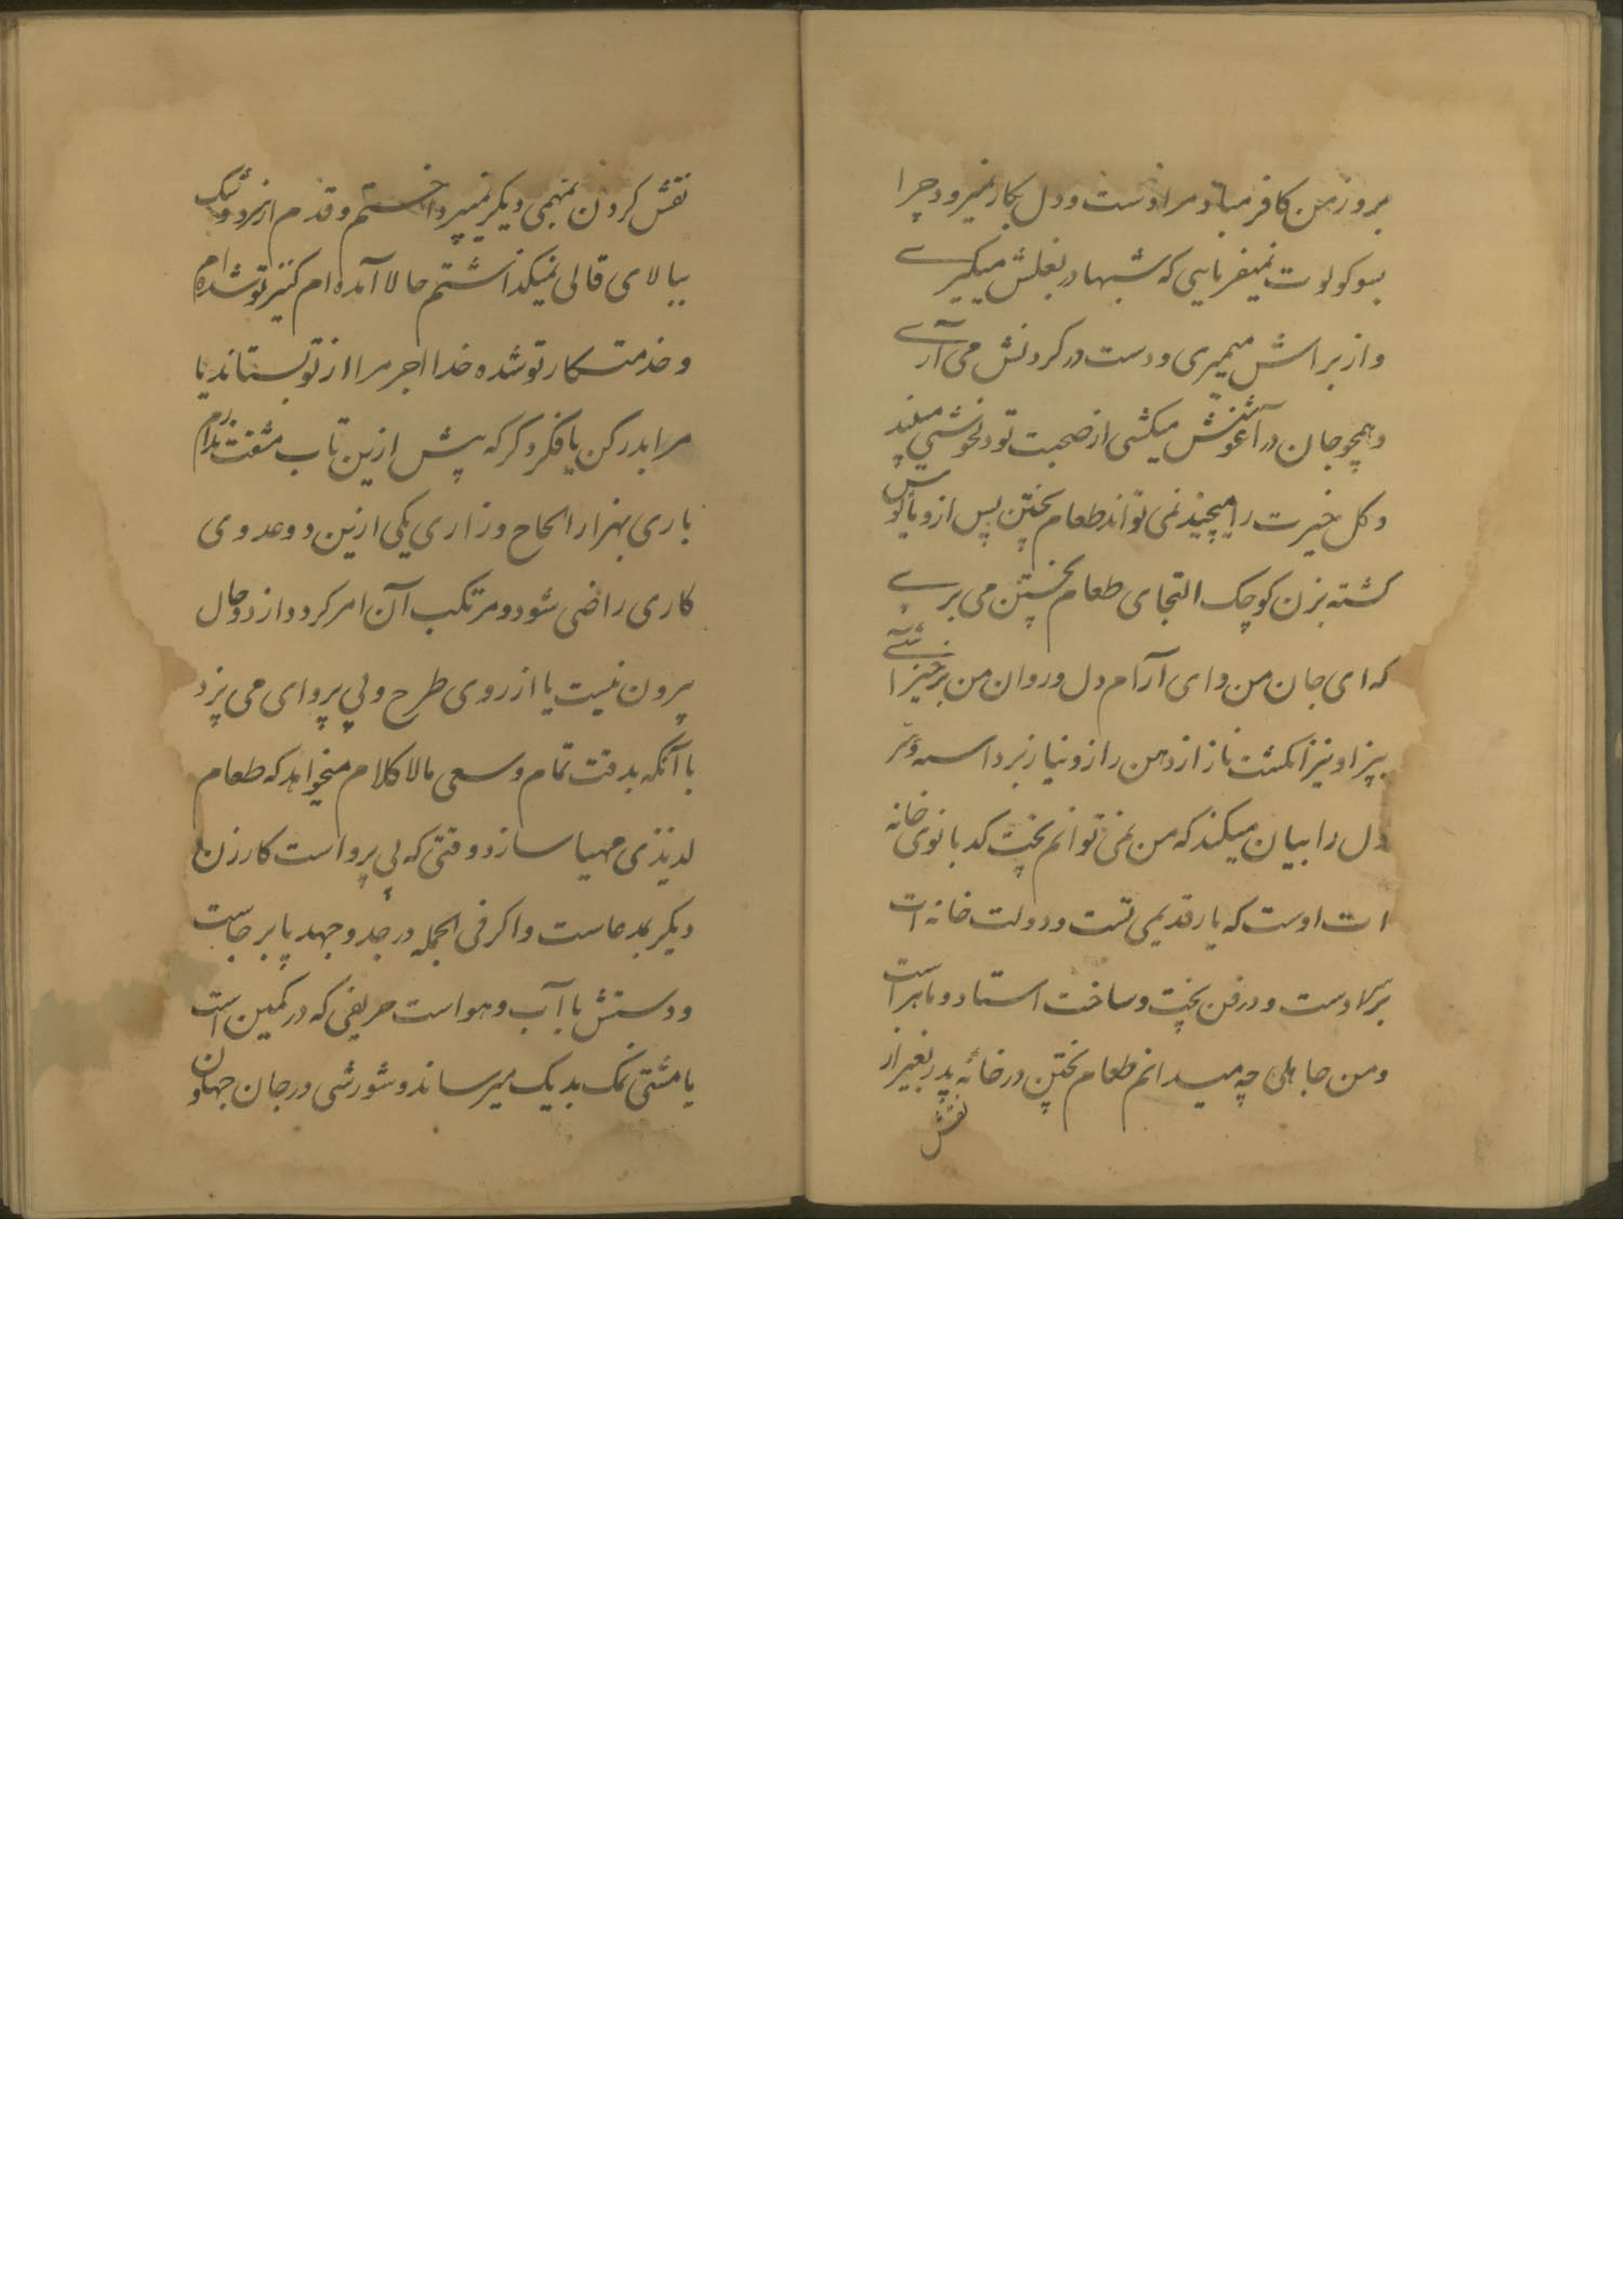 بروز من کافر مباد مرا دست و دل بکار نمیرود چرا
بسوکولوت نمیفرمایی که شبها در بغلش میکیری
و از براش میمیری و دست در کردنش می آری
و همچو جان در آغوشش میکشی از صحبت تو دلخوشی میبیند
و کل خیرت را میچیند نمی تواند طعام پختن پس ازو مأیوس
کشته بزن کوچک التجای طعام پختن می بری
که ای جان من و ای آرام دل و روان من برخیز آشی
بپز او نیز انکشت ناز از دهن راز و نیاز برداسه و
دل را بیان میکند که من نمی توانم پخت کدبانوی خانه
ات اوست که یار قدیمی تست و دولت خانه ات
برکلا اوست و در فن پخت و ساخت استاد و ماهر است
و من جاهلی چه میدانم طعام پختن در خانه پدر بغیر از
نقش
نقش کردن بمنهمی دیکر نمیپرداختم و قدم از نزد و شک
ببالای قالی نمیکذاشتم حالا آمده ام کنیز تو شده ام
و خدمتکار تو شده خدا اجر مرا از تو بستاند یا
مرا بدر کن یا فکر دکر که پیش ازین تاب مشقت ندارم
باری بهزار الحاح و زاری یکی ازین دو عدوی
کاری راضی شود و مرتکب آن امر کردد از دو حال
بیرون نیست یا از روی طرح و بی پروای می پزد
با آنکه بدقت تمام و سعی مالا کلام میخواهد که طعام
لذیذی مهیا سازد وقتی که بی پرواست کار زن
دیکر بمدعاست و اکر فی الجمله در جد و جهد پابرجاست
و دستش با آب و هواست حریفی که در کمین است
یا مشتی نمک بدیک میرساند و شورشی در جان جهان